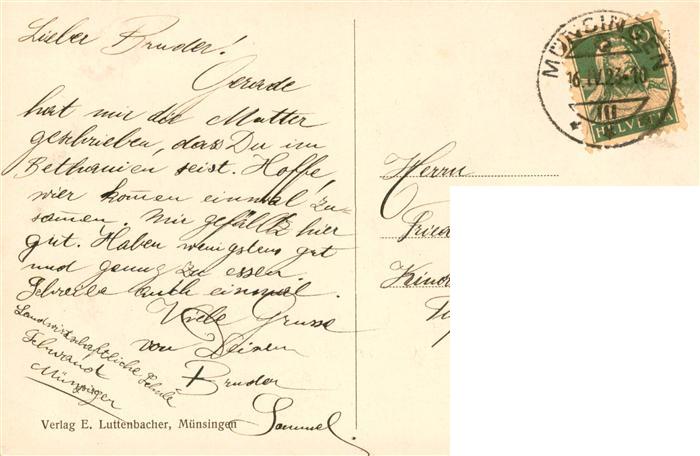 Lieber Bruder!
Gerade
hat mir die Mutter
geschrieben, dass Du im
Bethanien seist. Hoffe,
wier komen einmal zu-
samen. Mir gefällt hier
gut. Haben wenigstens gut
und genug zu essen.
Schreibe auch einmal.
Viele Grüsse
von Deinem
Bruder
Samuel.
Landwirtschaftliche Schule
Schwand
Münsingen
Verlag E. Luttenbacher, Münsingen
MÜNSINGEN
16. IV. 23-10
III
HELVETIA
Herrn
Fried